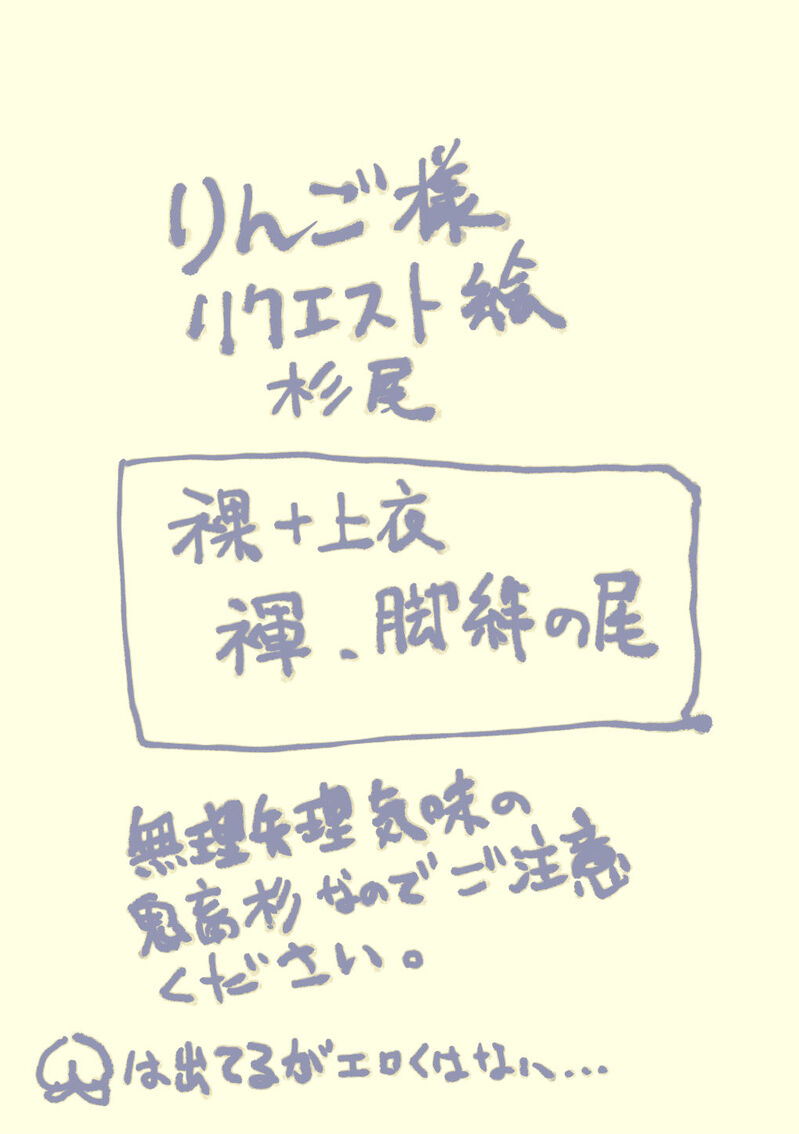 りんご様
リクエスト絵
杉尾
裸+上衣
褌、脚絆の尾
無理矢理気味の
鬼畜杉なのでご注意
ください。
は出てるがエロくはない...